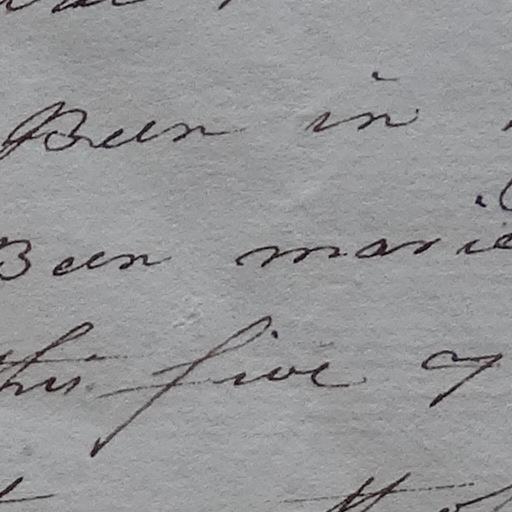 Been in
Been marie
this five